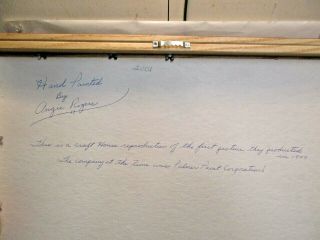 2001
Hand Painted
By
Angie Rogers
This is a Craft House reproduction of the first picture they produced
in 1949
The company at the time was Palmer Paint Corporation